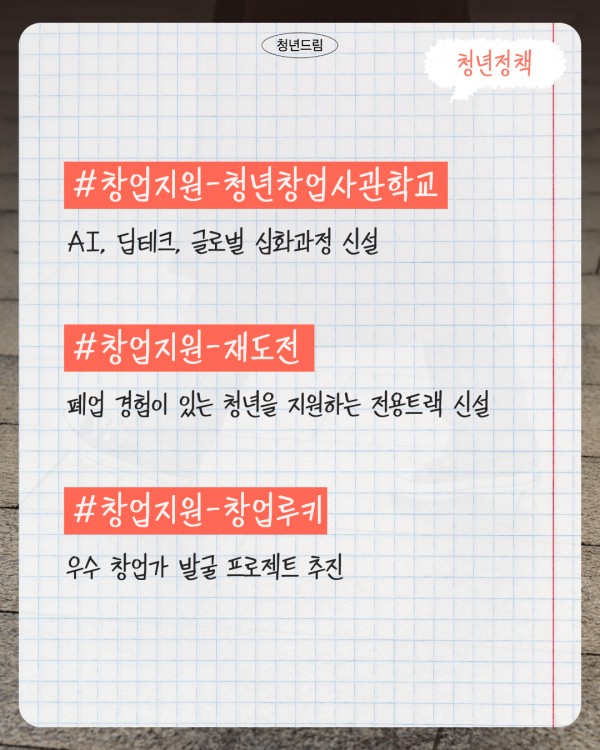 청년드림
청년정책
#창업지원-청년창업사관학교
AI, 딥테크, 글로벌 심화과정 신설
#창업지원-재도전
폐업 경험이 있는 청년을 지원하는 전용트랙 신설
#창업지원-창업루키
우수 창업가 발굴 프로젝트 추진